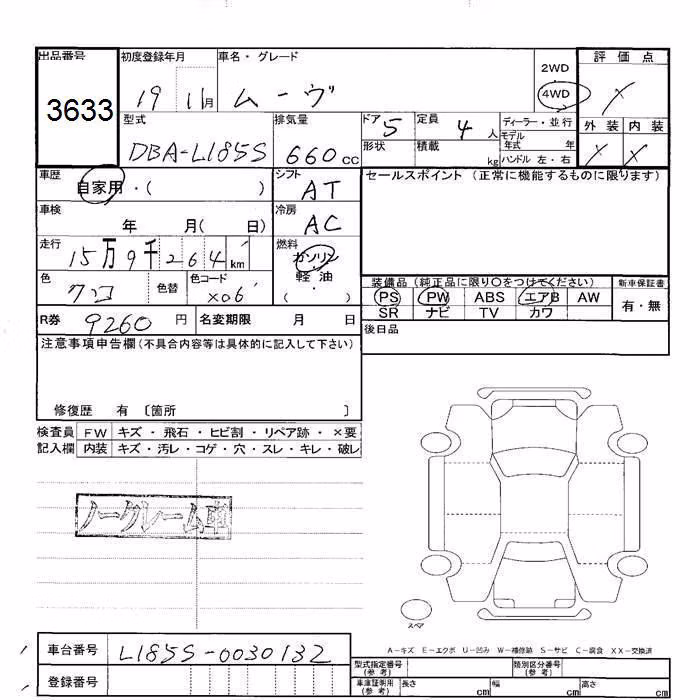 出品番号 初度登録年月 車名・グレード 評価点
3633 19 11月 ムーヴ 2WD 4WD
外装 内装
型式 排気量 ドア 定員 ディーラー・並行
DBA-L185S 660cc 5 4人 モデル年式 年
形状 積載 kg ハンドル 左・右
車歴 自家用・( ) シフト AT セールスポイント (正常に機能するものに限ります)
車検 年 月( 日) 冷房 AC
走行 15万9千264km 燃料 ガソリン
軽油
( )
色 クロ 色替 色コード X06
装備品 (純正品に限り○をつけてください) 新車保証書
PS PW ABS エアB AW 有・無
SR ナビ TV カワ
R券 9260円 名変期限 月 日 後日品
注意事項申告欄(不具合内容等は具体的に記入して下さい)
修復歴 有 〔箇所 〕
検査員 FW キズ・飛石・ヒビ割・リペア跡・×要
記入欄 内装 キズ・汚レ・コゲ・穴・スレ・キレ・破レ
ノークレーム車
スペア
A-キズ E-エクボ U-凹み W-補修跡 S-サビ C-腐食 XX-交換済
車台番号 L185S-0030132
型式指定番号(参考) 類別区分番号(参考)
登録番号
車庫証明用(参考) 長さ cm 幅 cm 高さ cm